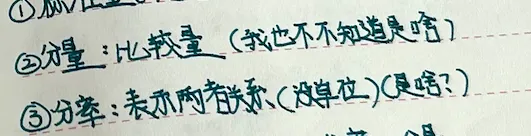 ②分量：比较量（我也不不知道是啥）
③分率：表示两者关系、（没单位）（是啥？）